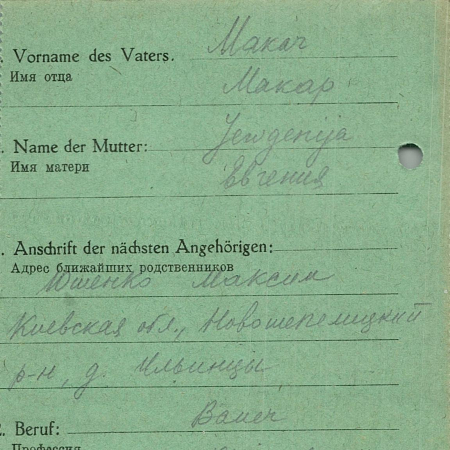 Vorname des Vaters. Makar
Имя отца Макар
. Name der Mutter: Jewgenija
Имя матери Евгения
. Anschrift der nächsten Angehörigen:
Адрес ближайших родственников
Ющенко Максим
Киевская обл., Новошепелицкий
р-н, д. Ильинцы
. Beruf: Bauer
Профессия